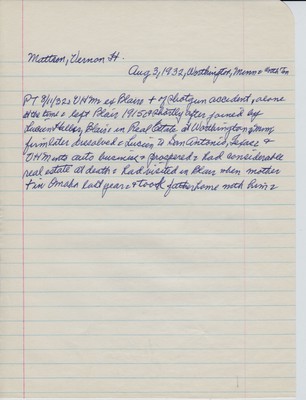 Mattson, Vernon H.
Aug 3, 1932, Worthington, Minn
PT 8/11/32: VHM ex Blair + of shotgun accident, alone
at the time & left Blair 1915 & shortly after joined by
Lucien Blair in Real Estate at Worthington
firm later dissolved & Lucien to San Antonio, Texas &
VHM auto business & prospered & had considerable
real estate at death & had visited in Blair when mother
+ in Omaha last year & took father home with him &